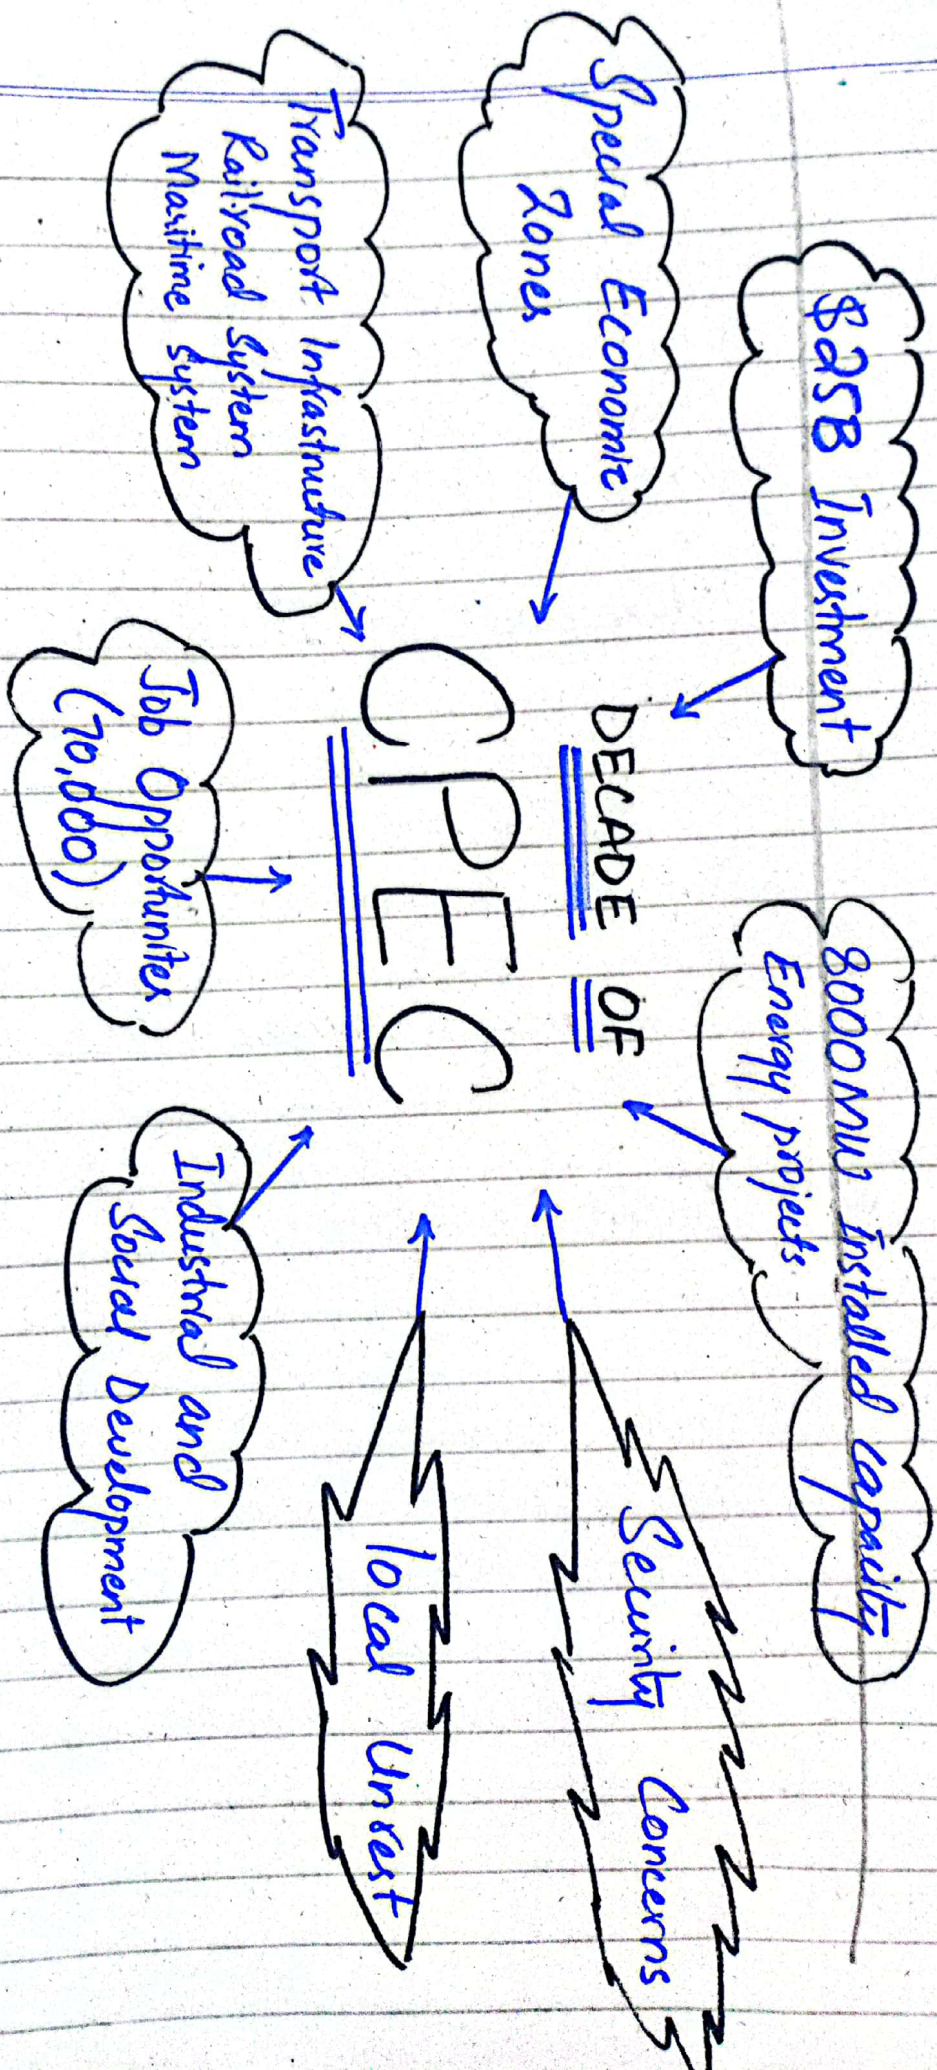 $25B Investment
8000MW Installed Capacity
Energy projects
Special Economic
Zones
DECADE OF
CPEC
Security Concerns
local Unrest
Transport Infrastructure
Railroad System
Maritime System
Job Opportunites
(70,000)
Industrial and
Social Development